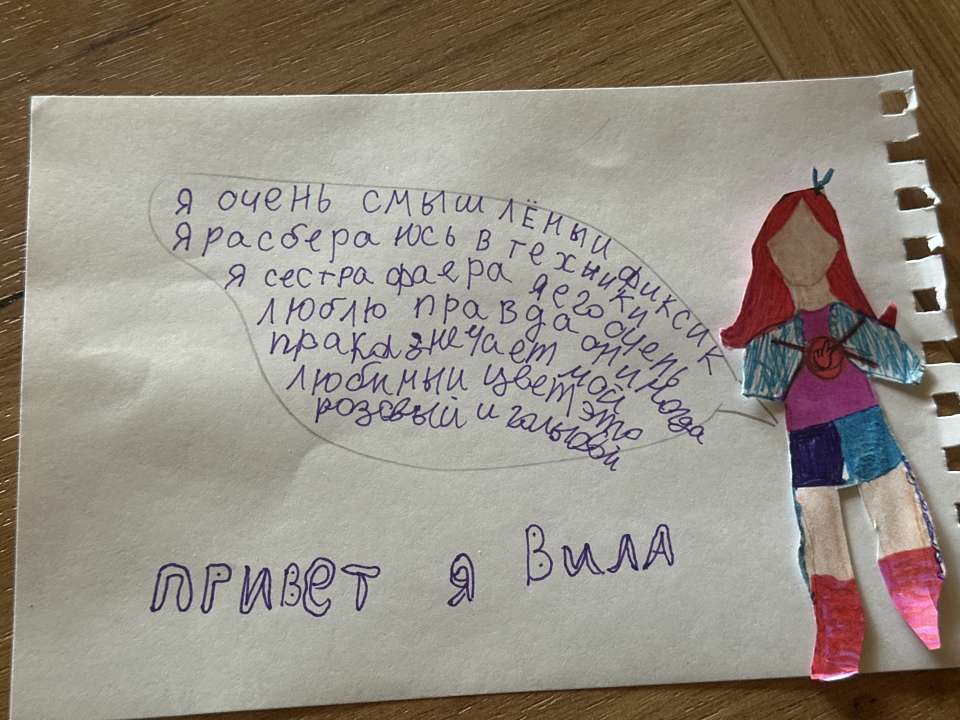 я очень смышлёный фиксик
я расбераюсь в технике
я сестра фаера я его очень
люблю правда он иногда
праказнечает мой
любимый цвет это
розовый и голыбой
привет я Вила